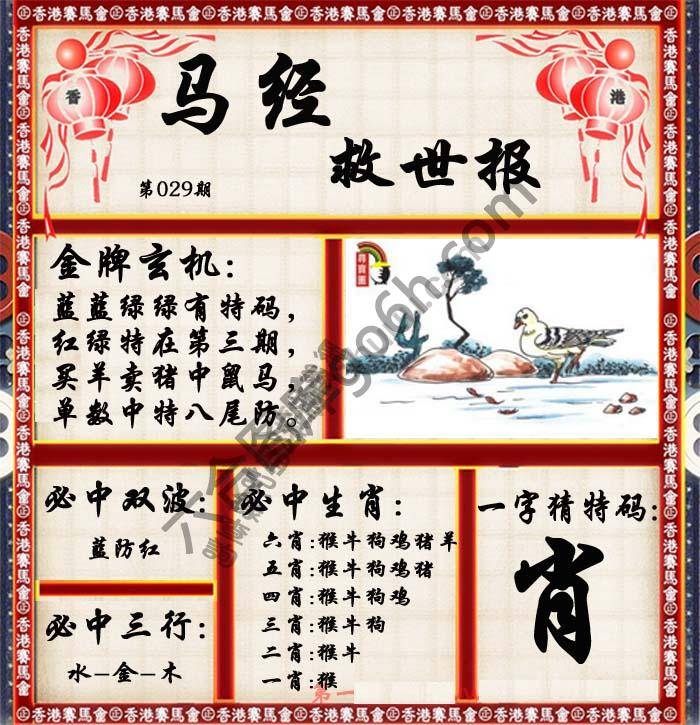 香港賽馬會
香
港
马经
救世报
第029期
金牌玄机:
蓝蓝绿绿有特码,
红绿特在第三期,
买羊卖猪中鼠马,
单数中特八尾防。
尋寶圖
必中双波:
蓝防红
必中三行:
水-金-木
必中生肖:
六肖:猴牛狗鸡猪羊
五肖:猴牛狗鸡猪
四肖:猴牛狗鸡
三肖:猴牛狗
二肖:猴牛
一肖:猴
一字猜特码:
肖